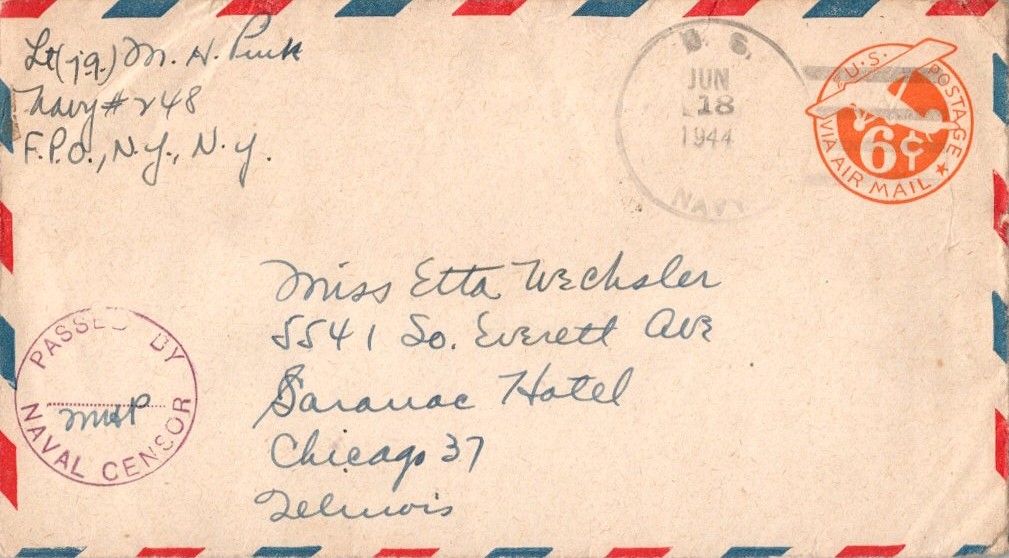 Lt(jg.) M. H. Pink
Navy # 248
F.P.O., N.Y., N.Y.
U. S.
JUN
18
1944
NAVY
U.S. POSTAGE
6¢
VIA AIR MAIL
Miss Etta Wechsler
5541 So. Everett Ave
Saranac Hotel
Chicago 37
Illinois
PASSED BY
MHP
NAVAL CENSOR